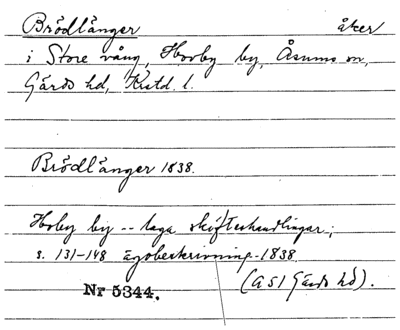 Brödlänger åker
i Store vång, Horby by, Åsums sn,
Gärds hd, Kristd. l.
Brödlänger 1838.
Hoby by -- laga skifteshandlingar;
s. 131-148 ägobeskrivning - 1838
Nr 5344. (ASI Gärds hd).